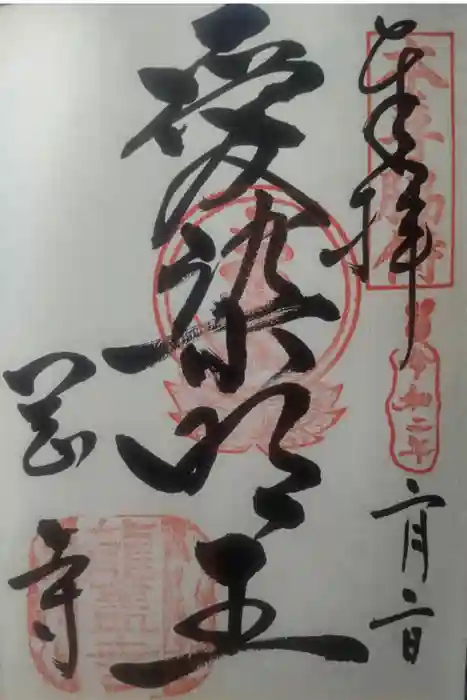 奉拝
令和二年
二月二日
愛染明王
岡寺